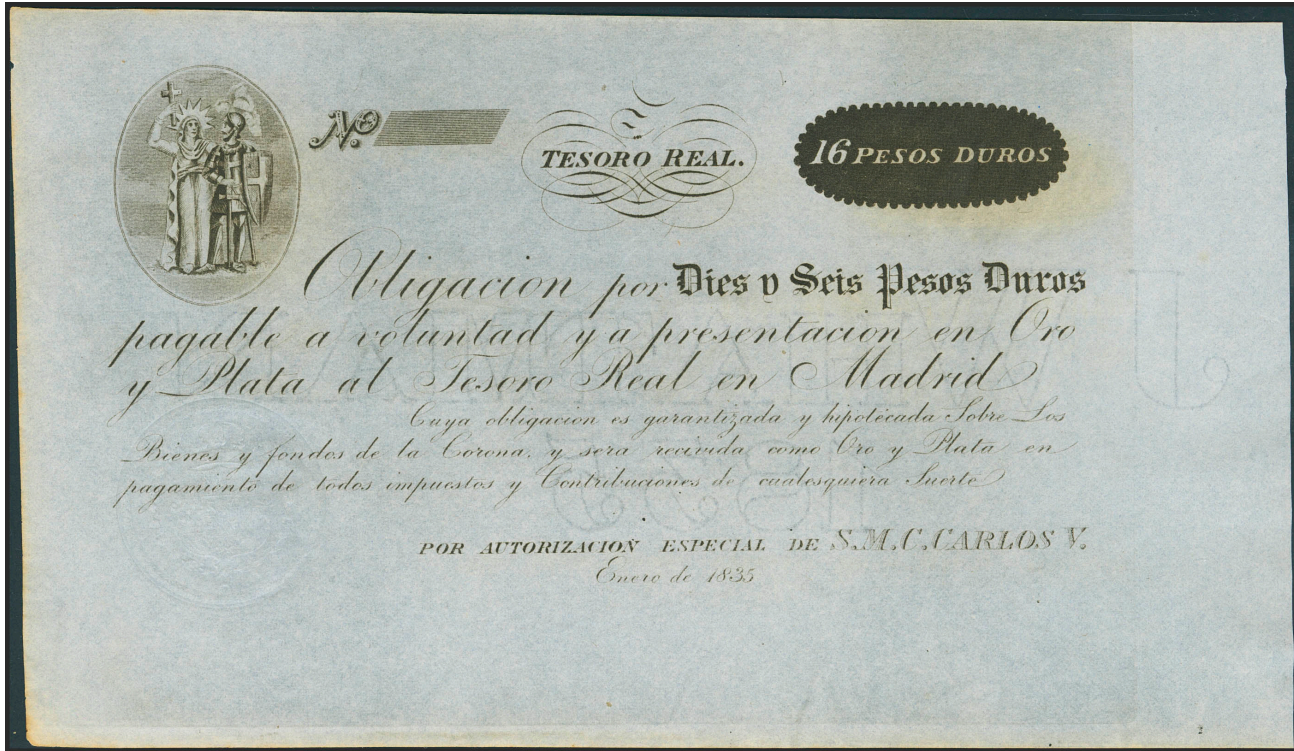 Nº
TESORO REAL.
16 PESOS DUROS
Obligacion por Dies y Seis Pesos Duros
pagable a voluntad y a presentacion en Oro
y Plata al Tesoro Real en Madrid
Cuya obligacion es garantizada y hipotécada Sobre Los
Bienes y fondos de la Corona, y sera recivida como Oro y Plata en
pagamiento de todos impuestos y Contribuciones de cualesquiera Suerte
POR AUTORIZACION ESPECIAL DE S.M.C.CARLOS V.
Enero de 1835
J WHATMAN